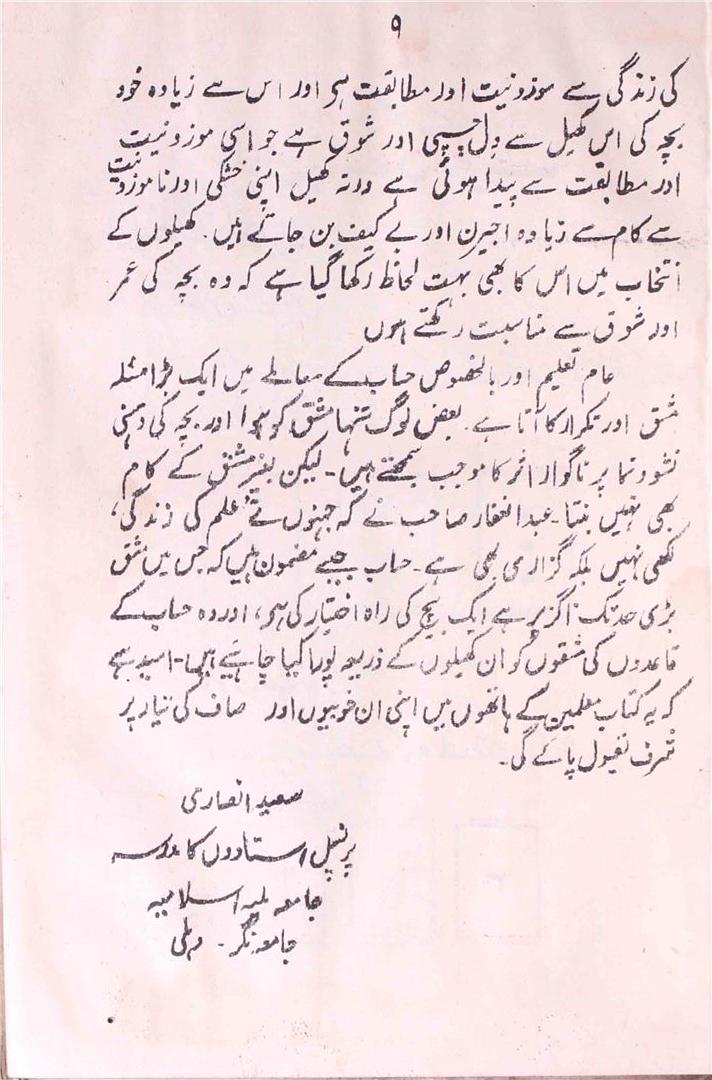 ۹
کی زندگی سے موزونیت اور مطابقت ہی اور اس سے زیادہ خود
بچہ کی اس کھیل سے دلچسپی اور شوق ہے جو اسی موزونیت
اور مطابقت سے پیدا ہوئی ہے ورنہ کھیل اپنی خشکی اور ناموزونیت
سے کام سے زیادہ اجیرن اور بے کیف بن جاتے ہیں۔ کھیلوں کے
انتخاب میں اس کا بھی بہت لحاظ رکھا گیا ہے کہ وہ بچہ کی عمر
اور شوق سے مناسبت رکھتے ہوں
عام تعلیم اور بالخصوص حساب کے معاملے میں ایک بڑا مسئلہ
مشق اور تکرار کا آتا ہے۔ بعض لوگ تنہا مشق کو ہوا اور بچہ کی ذہنی
نشوونما پر ناگوار اثر کا موجب سمجھتے ہیں۔ لیکن بغیر مشق کے کام
بھی نہیں بنتا۔ عبدالغفار صاحب نے کہ جنہوں نے ’علم کی زندگی‘
لکھی نہیں بلکہ گزاری بھی ہے۔ حساب جیسے مضمون میں کہ جس میں مشق
بڑی حد تک ناگزیر ہے ایک بیچ کی راہ اختیار کی ہی، اور وہ حساب کے
قاعدوں کی مشقوں کو ان کھیلوں کے ذریعہ پورا کیا چاہتے ہیں۔ امید ہے
کہ یہ کتاب معلمین کے ہاتھوں میں اپنی ان خوبیوں اور صاف کی بنیاد پر
شرف قبول پائے گی۔
سعید انصاری
پرنسپل استادوں کا مدرسہ
جامعہ ملیہ اسلامیہ
جامعہ نگر۔ دہلی